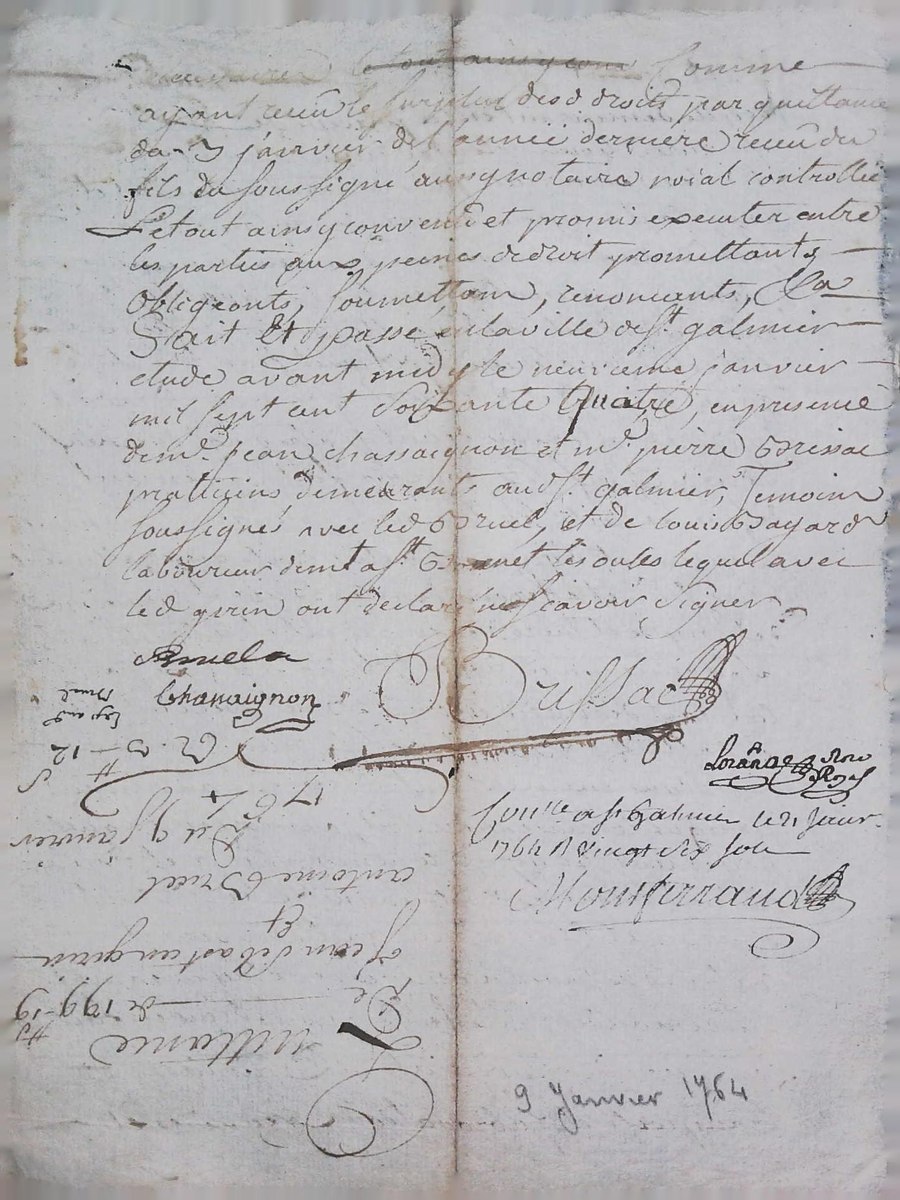 le tout ainsy conv Comme
ayant receu le surplus desd droits par quittance
du 7 janvier de l'année derniere receu du
fils du soussigné aussy notaire roial controllée
Le tout ainsy convenu et promis executer entre
les parties aux peines de droit promettants
obligeants, soumettants, renonceants, &a
Fait Et passé en la ville de st galmier
etude avant midy le neuvieme janvier
mil sept cent soixante Quatre, en presence
de me. jean chassaignon et me. pierre Brissac
praticiens demeurants aud st. galmier, Temoins
soussignés avec led Bruel, et de louis Bayard
laboureur demt a st. Bonnet les oules lequel avec
led girin ont declaré ne scavoir signer
Bruel
Chassaignon
Brissac
Not
Royal
Conlle a st Galmier le 21 janr.
1764 R vingt six sols
Montferrand
Quittance
De de 199-19
Jean Sebastien girin
Et
antoine Bruel
Du 9 Janvier
1764
R. 3-12
Exp
Bruel
9 Janvier 1764